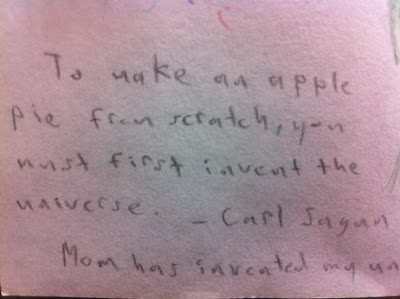 To make an apple
pie from scratch, you
must first invent the
universe. – Carl Sagan
Mom has invented my un